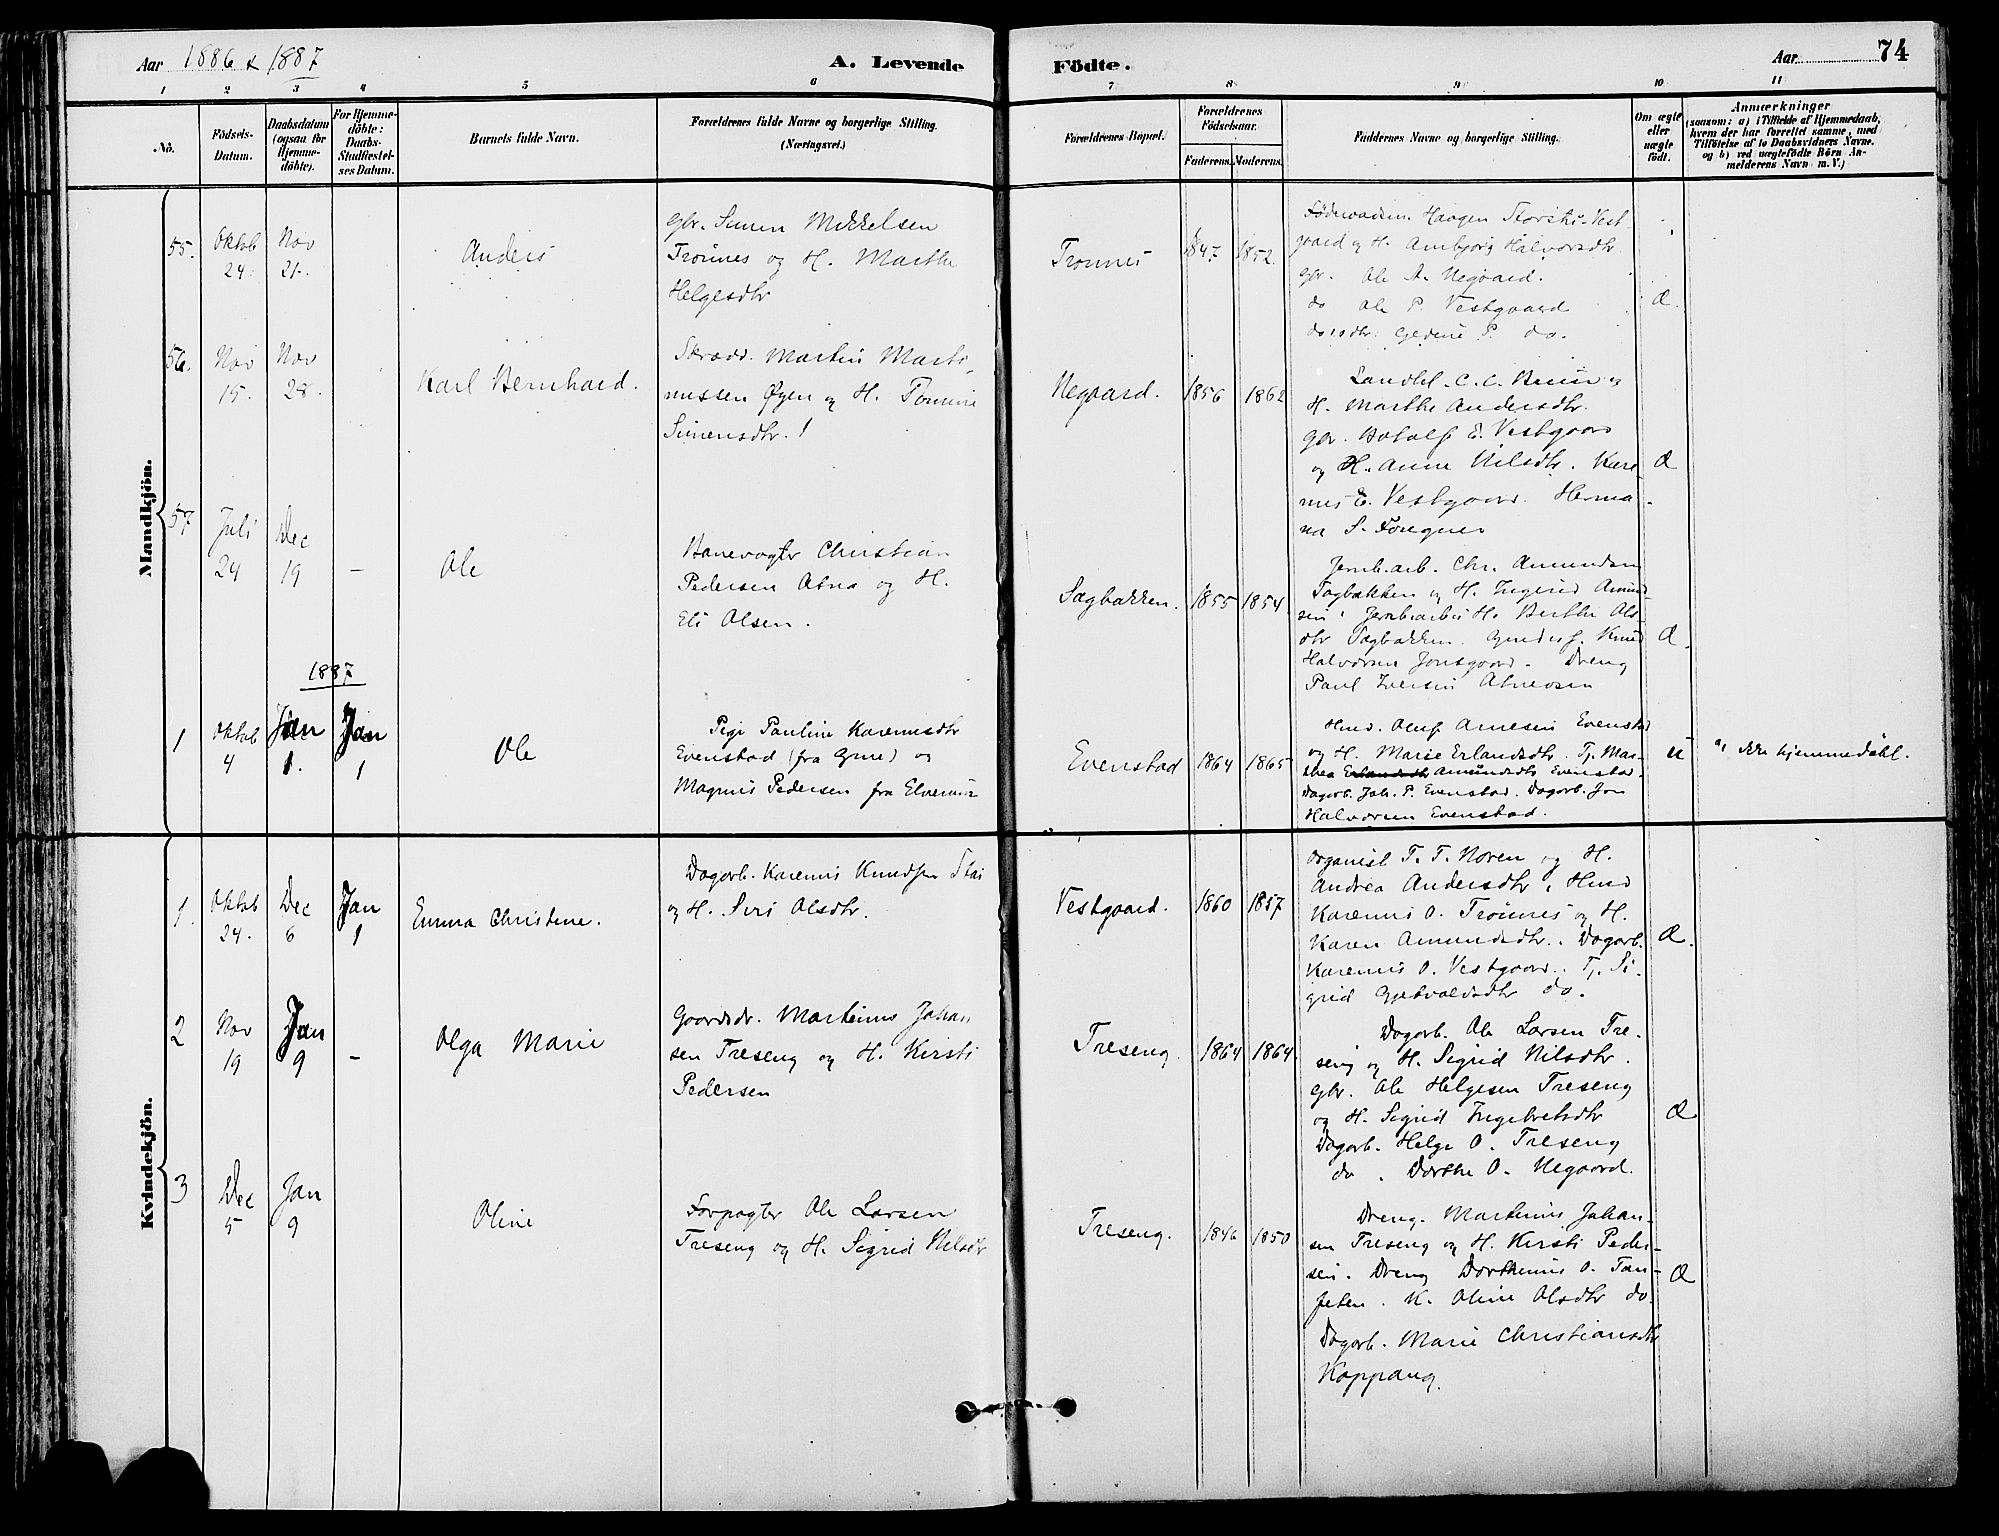 Aar 1886 & 1887
A. Levende
Födte.
Aar 74
1 2 3 4 5 6 7 8 9 10 11
No.
Födsels-Datum.
Daabsdatum (ogsaa for Hjemme-döbte).
For Hjemme-döbte: Daabs-Stadfæstel-ses Datum.
Barnets fulde Navn.
Forældrenes fulde Navne og borgerlige Stilling. (Næringsvei.)
Forældrenes Bopæl.
Forældrenes Födselsaar.
Faderens. Moderens.
Faddernes Navne og borgerlige Stilling.
Om ægte eller uægte födt.
Anmærkninger
(saasom: a) i Tilfælde af Hjemmedaab, hvem der har forrettet samme, med Tilföielse af to Daabsvidners Navne, og b) ved uægtefödte Börn An-melderens Navn m. V.)
Mandkjön.
55. Oktob 24. Nov 21. Anders
Gbr. Simen Mikkelsen
Trønnes og H. Marthe
Helgesdtr
Trønnes 1847 1852
Haagen
gaard og H. Ambjørg Halvorsdtr
gbr. Ole A. Negaard.
do Ole P. Vestgaard
P. do.
Æ.
56. Nov 15. Nov 28. Karl Bernhard.
Skrædd. Martin Marti-
nussen Øgen og H.
Simensdtr.
Negaard. 1856 1862
Landhl. C. C. og
H. Marthe Andersdtr.
gbr. E. Vestgaard
og H. Anne Nilsdtr. Kare
nus E. Vestgaard. Herma-
na S.
Æ
57 Juli 24 Dec 19 - Ole
Banevogter Christian
Pedersen Atna og H.
Eli Olsen.
Sagbakken. 1855 1854
Jernb.arb. Chr. Amundsen
Sagbakken og H. Ingerid Amund
sen. H. Berthe Ols
dtr Sagbakken. Knud
Halvorsen Dreng
Paul Iversen Atneosen
Æ.
1887
1 Oktob 4 Jan 1. Jan 1 Ole
Pige Pauline Karenusdtr
Evenstad (fra Grue) og
Magnus Pedersen fra Elverum
Evenstad 1864 1865
Hmd. Oluf Arnesen Evenstad
og H. Marie Erlandsdtr. Tj. Mar-
thea Erlandsdtr Amundsdtr Evenstad.
Dagarb. Joh. P. Evenstad. Dagarb. Jon
Halvorsen Evenstad.
u
a, ikke hjemmedøbt.
Kvindekjön.
1. Oktob 24. Dec 6 Jan 1 Emma Christine.
Dagarb. Karenus Knudsen Stai
og H. Siri Olsdtr.
Vestgaard. 1860 1857
Organist T. T. Noren og H.
Andrea Andersdtr. Hmd
Karenus O. Trønnes og H.
Karen Amundsdtr. Dagarb.
Karenus O. Vestgaard. Tj. Si-
grid do.
Æ.
2 Nov 19 Jan 9 - Olga Marie
Gaardsdr. Martinus Johan
sen Treseng og H. Kirsti
Pedersen
Treseng. 1864 1864.
Dagarb. Ole Larsen Tre-
seng og H. Sigrid Nilsdtr.
gbr. Ole Helgesen Treseng
og H. Sigrid Ingebretsdtr
Dagarb. Helge O. Treseng
do. Dorthe O. Negaard.
Æ
3 Dec 5 Jan 9 Oline
Forpagter Ole Larsen
Treseng og H. Sigrid Nilsdtr
Treseng. 1846 1850
Dreng. Martinus Johan-
sen Treseng og H. Kirsti Peder-
sen. Dreng Dorthenus O.
K. Oline Olsdtr do.
Dagarb. Marie Christiansdtr
Koppang.
Æ